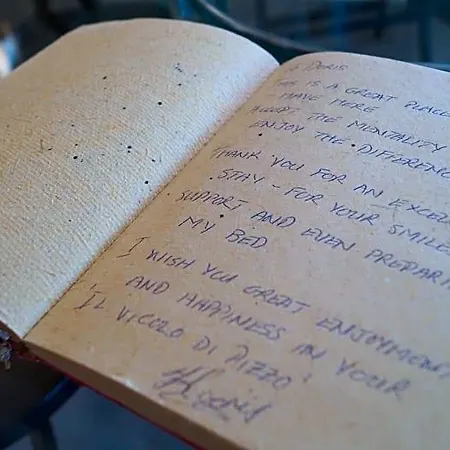 DORIS
IS A GREAT PLACE
HAVE HERE
ACCEPT THE MENTALITY
ENJOY THE DIFFERENC
THANK YOU FOR AN EXCELL
STAY - FOR YOUR SMILE
SUPPORT AND EVEN PREPARI
MY BED
I WISH YOU GREAT ENJOYMENT
AND HAPPINESS IN YOUR
IL VICOLO DI PIZZO!